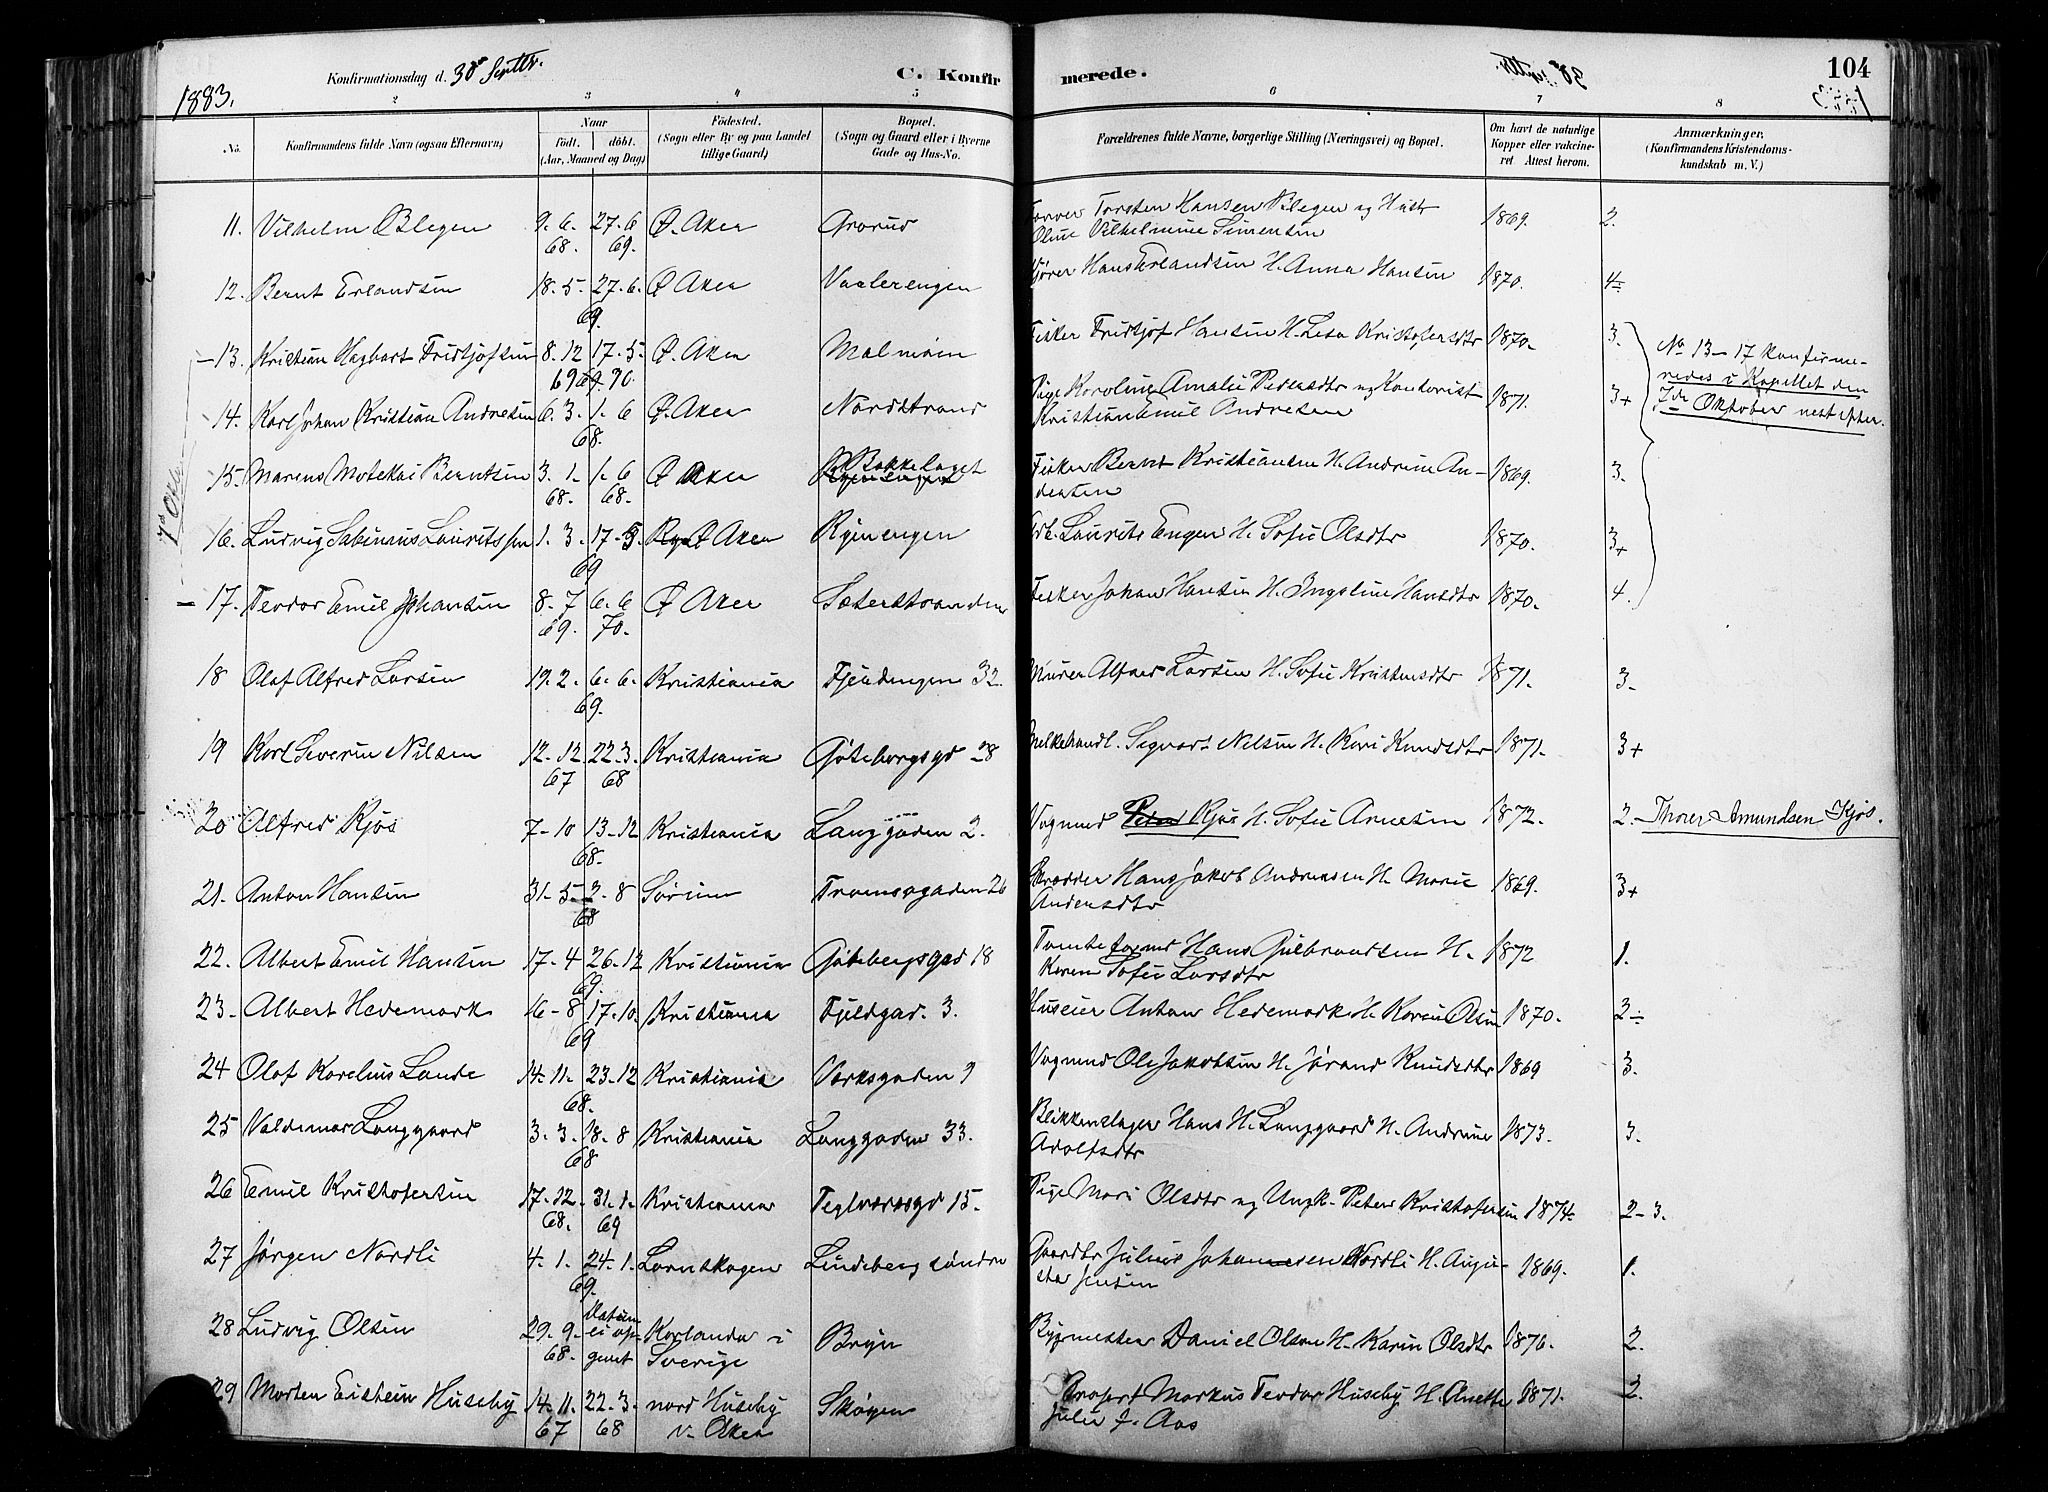 1883.
Konfirmationsdag d. 30te Septbr.
C. Konfirmerede.
104
2 3 4 5 6 7 8
No.
Konfirmandens fulde Navn (ogsaa Efternavn)
Naar
født. døbt.
(Aar, Maaned og Dag)
Fødested.
(Sogn eller By og paa Landet tillige Gaard)
Bopæl.
(Sogn og Gaard eller i Byerne Gade og Hus-No.
Forældrenes fulde Navne, borgerlige Stilling (Næringsvei) og Bopæl.
Om havt de naturlige Kopper eller vaccineret Attest herom.
Anmærkninger.
(Konfirmandens Kristendomskundskab m. V.)
11. Vilhelm Blegen 9. 6. 68. 27. 6 69. Ø. Aker Grorud Torsten Hansen Blegen og Hustr Oline Vilhelmine Simensen 1869. 2.
12. Bernt Erlandsen 18. 5. 27. 6. 69. Ø Aker Vaalerengen Kjører Hans Erlandsen H. Anna Hansen 1870. 4-
13. Kristian Hagbart Fridtjofsen 8. 12 69 17. 5. 70. Ø. Aker Malmøen Fisker Fridtjof Hansen H. Lisa Kristofersdtr 1870. 3.
No 13-17 konfirmeredes i Kapellet den 7de Oktober nest efter.
14. Karl Johan Kristian Andresen 6. 3. 1. 6 68. Ø. Aker Nordstrand Pige Karoline Amalie Pedersdtr og Kontorist Kristian Emil Andresen 1871. 3+
7de Okt.
15. Berntsen 3. 1. 68. 1. 6 68. Ø Aker Bækkelaget Fisker Bernt Kristiansen H. Andrine Andersen 1869. 3.
16. Ludvig Sabinius Lauritssen 1. 3. 17. 5 69 Ø Aker Ryenengen Arb. Laurits Engen H. Sofie Olsdtr 1870. 3+
17. Teodor Emil Johansen 8. 7 69. 6. 6 70. Ø Aker Sæterstranden Fisker Johan Hansen H. Ingeline Hansdtr 1870. 4.
18 Olaf Alfred Larsen 19. 2. 6. 6. 69. Kristiania Fjerdingen 32. Murer Alfred Larsen H. Sofie Kristensdtr 1871. 3-
19 Karl Severin Nilsen 12. 12 67 22. 3. 68 Kristiania Gøteborgsgd 28 Melkehandl. Sigvart Nilsen H. Kari Knudsdtr 1871. 3+
20 Alfred Kjøs 7-10 13-12 68. Kristiania Langgaden 2. Vognmd Peder Kjøs H. Sofie Arnesen 1872. 2. Thorer Amundsen Kjøs.
21. Anton Hansen 31. 5. 2. 8 68 Sørum Tromsøgaden 26 Skrædder Hans Jakob Andreasen H. Marie Andersdtr 1869. 3+
22. Albert Emil Hansen 17. 4 26. 12 69. Kristiania Gøteborgsgad 18 Tomtearmd Hans Gulbrandsen H. Karen Sofie Larsdtr 1872 1.
23. Albert Hedemark 16-8 17. 10. 69 Kristiania Fjeldgad. 3. Huseier Anton Hedemark H. Karen Olsen 1870. 2-
24 Olaf Kornelius Lande 14. 11. 23. 12 68. Kristiania Verksgaden 9 Vognmd Ole Jakobsen H. Jørand Knudsdtr 1869 3.
25 Valdemar Langgaard 3. 3. 18. 8 68 Kristiania Langgaden 33. Blikkenslager Hans H. Langgaard H. Andrine Adolfsdtr 1873. 3.
26 Emil Kristofersen 17. 12. 68. 31. 1. 69 Kristiania Teglverksgd 15. Pige Mari Olsdtr og Ungk. Peter Kristofersen 1874. 2-3.
27 Jørgen Nordli 4. 1. 24. 1. 69. Lørenskogen Lindeberg søndre Gaardbr Julius Johannesen Nordli H. Augusta Jensen 1869. 1.
28 Ludvig Olsen 29. 9. 68. Datum ei opgivet Korlanda i Sverige Bryn Bygmester Daniel Olsen H. Karin Olsdtr 1870. 2.
29 Morten Eistein Huseby 14. 11. 67 22. 3. 68 nord Huseby v. Aker Skøyen Propr. Markus Teodor Huseby H. Anette Julie J. Aas 1871. 2.